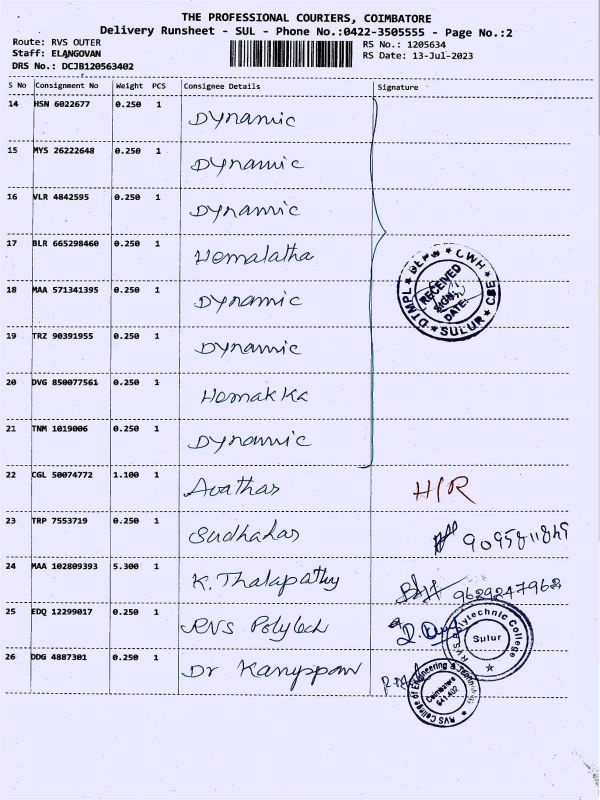 THE PROFESSIONAL COURIERS, COIMBATORE
Delivery Runsheet - SUL - Phone No.:0422-3505555 - Page No.:2
Route: RVS OUTER
RS No.: 1205634
Staff: ELANGOVAN
RS Date: 13-Jul-2023
DRS No.: DCJB120563402
S No Consignment No Weight PCS Consignee Details Signature
14 HSN 6022677 0.250 1 Dynamic
15 MYS 26222648 0.250 1 Dynamic
16 VLR 4842595 0.250 1 Dynamic
17 BLR 665298460 0.250 1 Hemalatha
18 MAA 571341395 0.250 1 Dynamic
DTMPL ★ BEPW ★ CWH ★ CBE ★ SULUR ★
RECEIVED
SIGN:
DATE:
19 TRZ 90391955 0.250 1 Dynamic
20 DVG 850077561 0.250 1 Hemakka
21 TNM 1019006 0.250 1 Dynamic
22 CGL 50074772 1.100 1 Avathas H/R
23 TRP 7553719 0.250 1 Sudhakar
24 MAA 102809393 5.300 1 K. Thalapathy 9629247962
25 EDQ 12299017 0.250 1 RVS Polytech
RVS Polytechnic College
Sulur
26 DDG 4887301 0.250 1 Dr Karuppan
RVS College of Engineering & Technology
Coimbatore
641 402